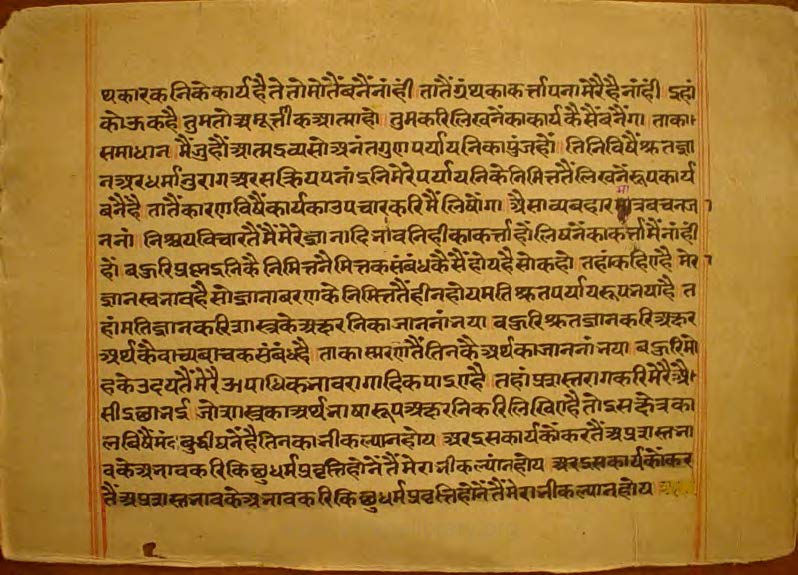 थकारकनिके कार्य है ते तो मो तैं बनैं नांहीं तातैं ग्रंथका कर्त्तापना मेरै है नांहीं ऽहां
कोऊ कहै तुम तो अमूर्त्तीक आत्मा हो तुम करि लिखनेंका कार्य कैसैं बनैंगा ताका
समाधान मैं जु हौं आत्मद्रव्य सो अनंत गुण पर्यायनिका पुंज हौं तिनि विषैं श्रुतज्ञा
न अर धर्मानुराग अर सक्रियपनां ऽनि मेरे पर्यायनिके निमित्ततैं लिखनेंरूप कार्य
बनै है तातैं कारण विषैं कार्यका उपचार करि मैं लिषोंगा अैसा व्यवहार मात्र वचन ज
ननां निश्चय विचारतैं मैं मेरे ज्ञानादि भावनिहीका कर्त्ता हों लिषनेंका कर्त्ता मैं नांही
हों बहुरि प्रश्न ऽनिकै निमित्तनैमित्तक संबंध कैसैं होय है सो कहो तहां कहिए है मेरा
ज्ञान स्वभाव है सो ज्ञानावरणके निमित्ततैं हीन होय मति श्रुत पर्यायरूप भया है त
हां मतिज्ञान करि शास्त्रके अक्षरनिका जाननां भया बहुरि श्रुतज्ञान करि अक्षर
अर्थकै वाच्यवाचक संबंध है ताका स्मरणतैं तिनकै अर्थका जाननां भया बहुरि मो
हके उदयतैं मेरै उपाधिक भाव रागादिक पाऽए है तहां प्रशस्त राग करि मेरै अै
सी ऽछा भई जो शास्त्रका अर्थ भाषारूप अक्षरनि करि लिखिए है तो ऽस क्षेत्र का
ल विषैं मंद बुद्धी घनें है तिनका भी कल्यान होय अर ऽस कार्यकों करतैं अप्रशस्त भा
वके अभाव करि किछु धर्म प्रवृत्ति होनेंतैं मेरा भी कल्यांन होय अर ऽस कार्यकों कर
तैं अप्रशस्त भावके अभाव करि किछु धर्म प्रवृत्ति होनेंतैं मेरा भी कल्यान होय